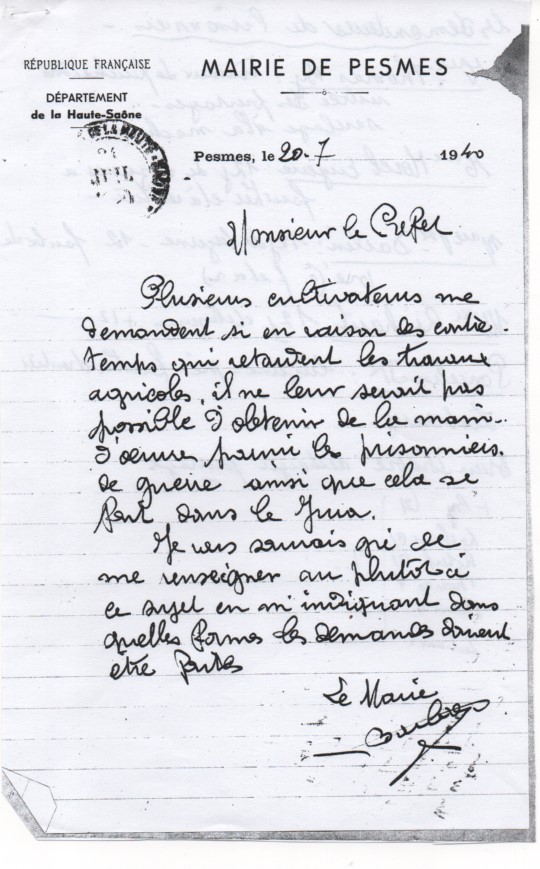 RÉPUBLIQUE FRANÇAISE
DÉPARTEMENT
de la Haute-Saône
MAIRIE DE PESMES
Pesmes, le 20.7 1940
Monsieur le Prefet
Plusieurs cultivateurs me
demandent si en raison des contre-
temps qui retardent les travaux
agricoles, il ne leur serait pas
possible d'obtenir de la main-
d'oeuvre parmi les prisonniers
de guerre ainsi que cela se
fait dans le Jura.
Je vous saurais gré de
me renseigner au plutôt à
ce sujet en m'indiquant dans
quelles formes les demandes doivent
etre faites
Le Maire